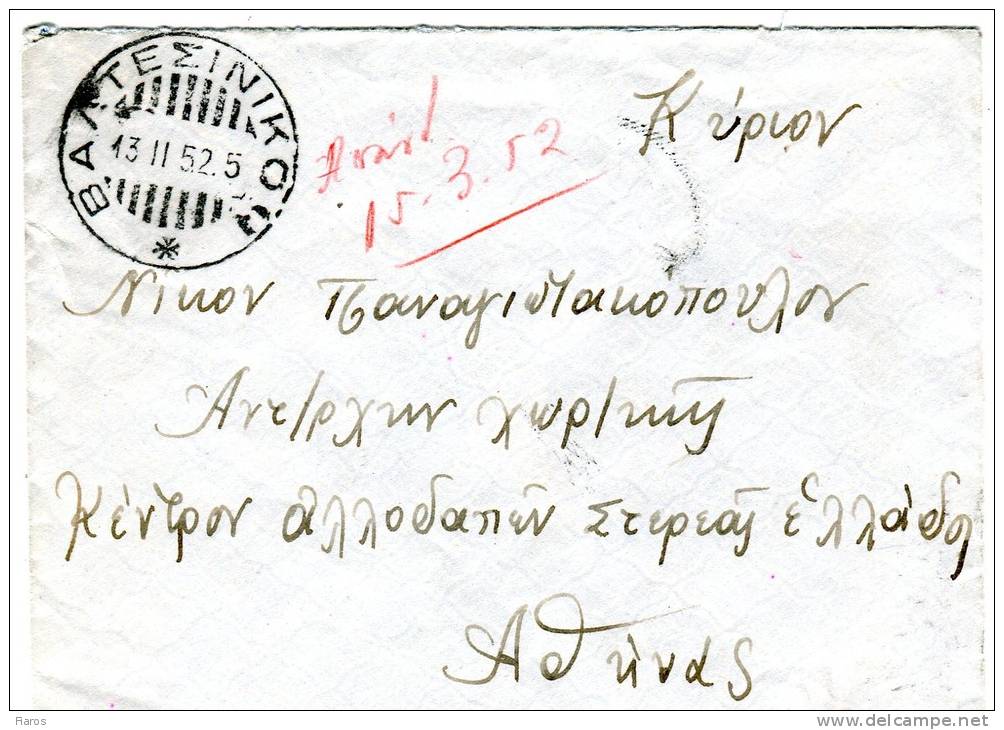 ΒΑΛΤΕΣΙΝΙΚΟΥ
13 II 52.5
Απάν!
15.3.52
Κύριον
Νίκον Παναγιωτακοπουλον
Αντ/ρχην χωρ/κης
Κέντρον αλλοδαπών Στερεάς Ελλάδος
Αθήνας
Raros
www.delcampe.net